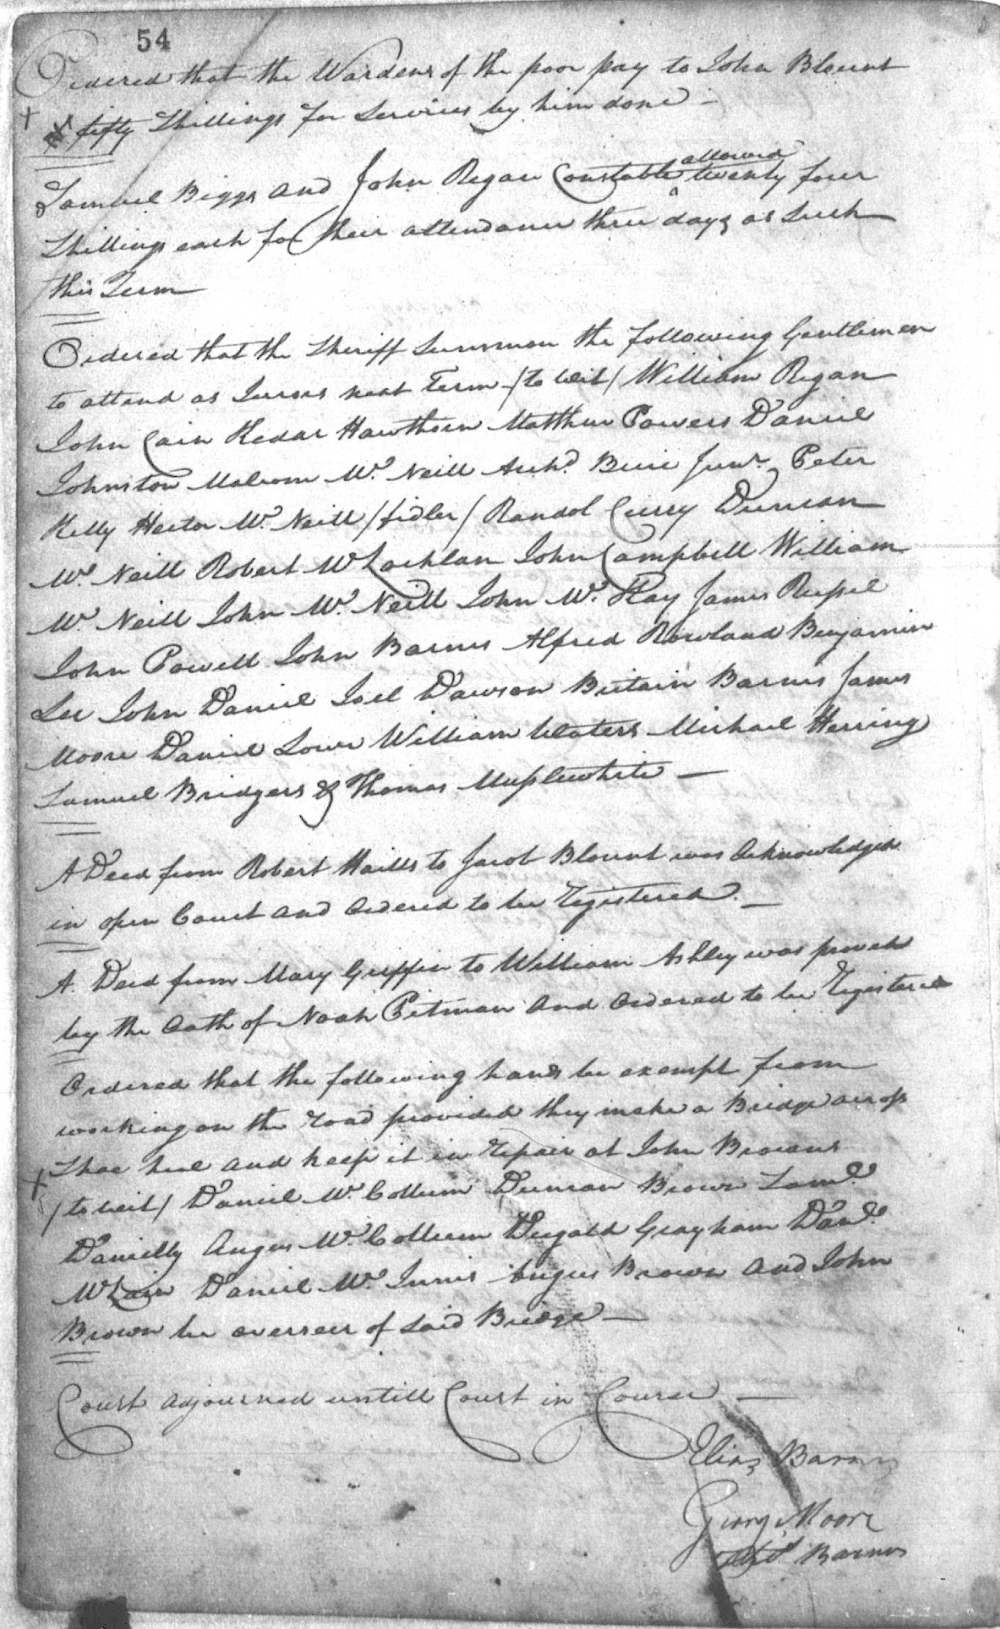 54
Ordered that the Wardens of the poor pay to John Blount
fifty Shillings for Services by him done -
Samuel Biggs and John Regan Constable allowed twenty four
Shillings each for their attendance three days as Such
this Term
Ordered that the Sheriff Summon the following Gentlemen
to attend as Jurors next Term /to wit/ William Regan
John Cain Kedar Hawthorn Matthew Powers Daniel
Johnston Malcom Mc. Neill Archd. Buie Junr. Peter
Kelly Hector Mc. Neill /fidler/ Randol Curry Duncan
Mc. Neill Robert McLachlan John Campbell William
Mc. Neill John Mc. Neill John Mc. Kay James Russel
John Powell John Barnes Alfred Rowland Benjamin
Lee John Daniel Joel Dawson Britain Barnes James
Moore Daniel Lowe William Waters Michael Herring
Samuel Bridgers & Thomas Musslewhite -
A Deed from Robert Hails to Jacob Blount was Acknowledged
in open Court and Ordered to be Registered. -
A. Deed from Mary Griffin to William Ashley was proved
by the Oath of Noah Pitman and Ordered to be Registered
Ordered that the following hands be exempt from
working on the road provided they make a Bridge across
Shoe heel and keep it in repair at John Browns
/to wit/ Daniel Mc. Collum Duncan Brown Saml.
Danielly Angus Mc. Collum Dugald Grayham Danl.
McLain Daniel Mc. Innis Angus Brown and John
Brown be overseer of Said Bridge -
Court adjourned untill Court in Course -
Elias Barnes
George Moore
Barnes